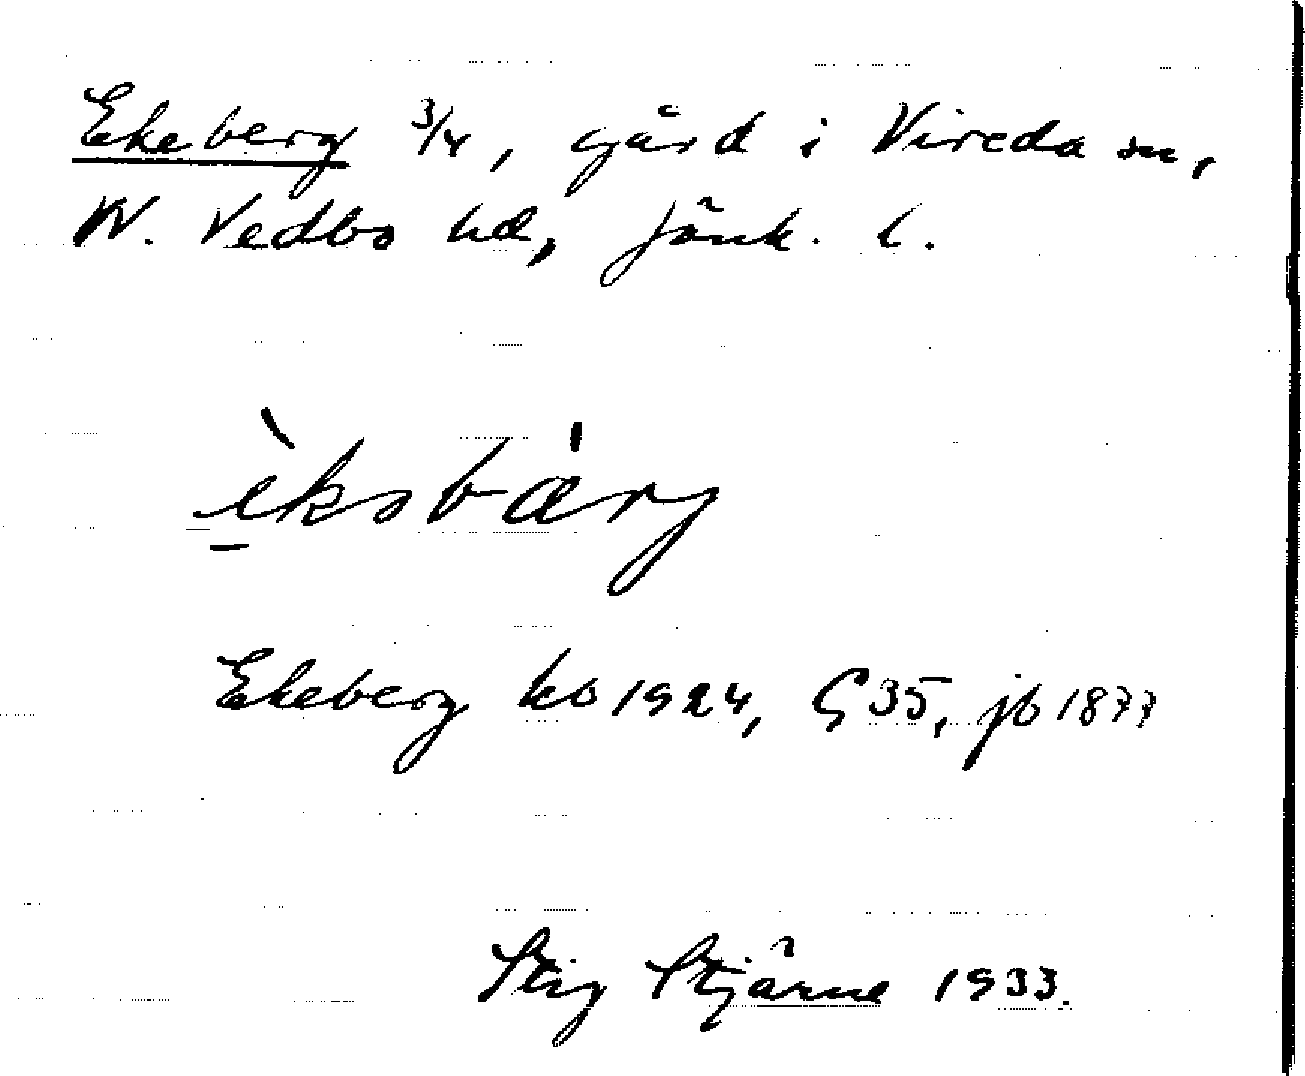 Ekeberg 3/4, gård i Vireda sn,
N. Vedbo hd, Jönk. l.
èksbärj
Ekeberg kb 1924, G 35, jb 1877
Stig Stjärne 1933.